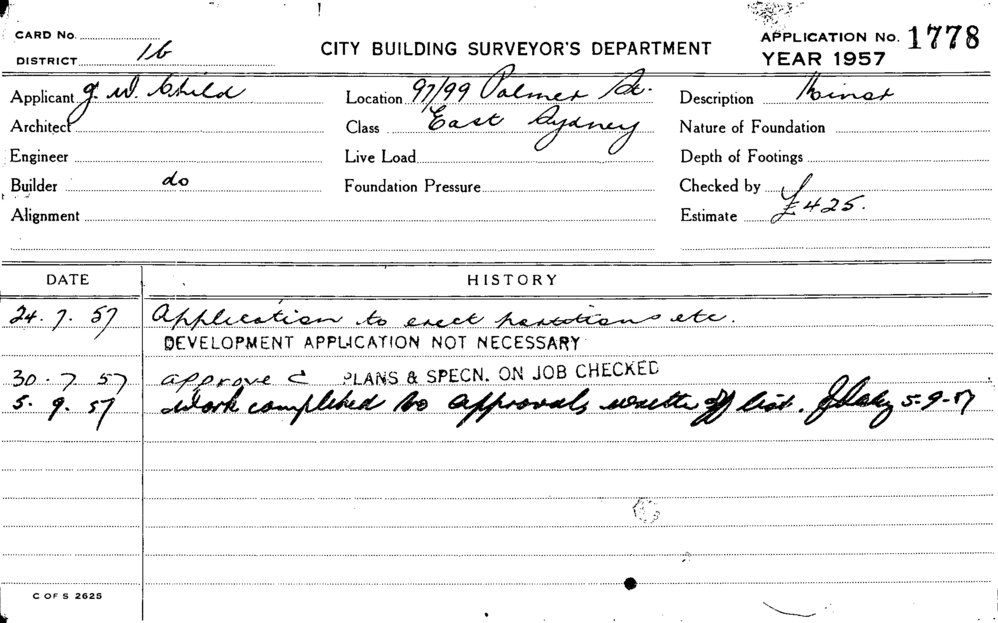 CARD No.
DISTRICT 16
CITY BUILDING SURVEYOR'S DEPARTMENT
APPLICATION No. 1778
YEAR 1957
Applicant J. W. Child
Location 97/99 Palmer St.
Description Minor
Architect
Class East Sydney
Nature of Foundation
Engineer
Live Load
Depth of Footings
Builder do
Foundation Pressure
Checked by
Alignment
Estimate £425.
DATE HISTORY
24. 7. 57 Application to erect partitions etc.
DEVELOPMENT APPLICATION NOT NECESSARY
30. 7. 57 approve C PLANS & SPECN. ON JOB CHECKED
5. 9. 57 Work completed to approvals write off list. 5-9-57
C OF S 2625